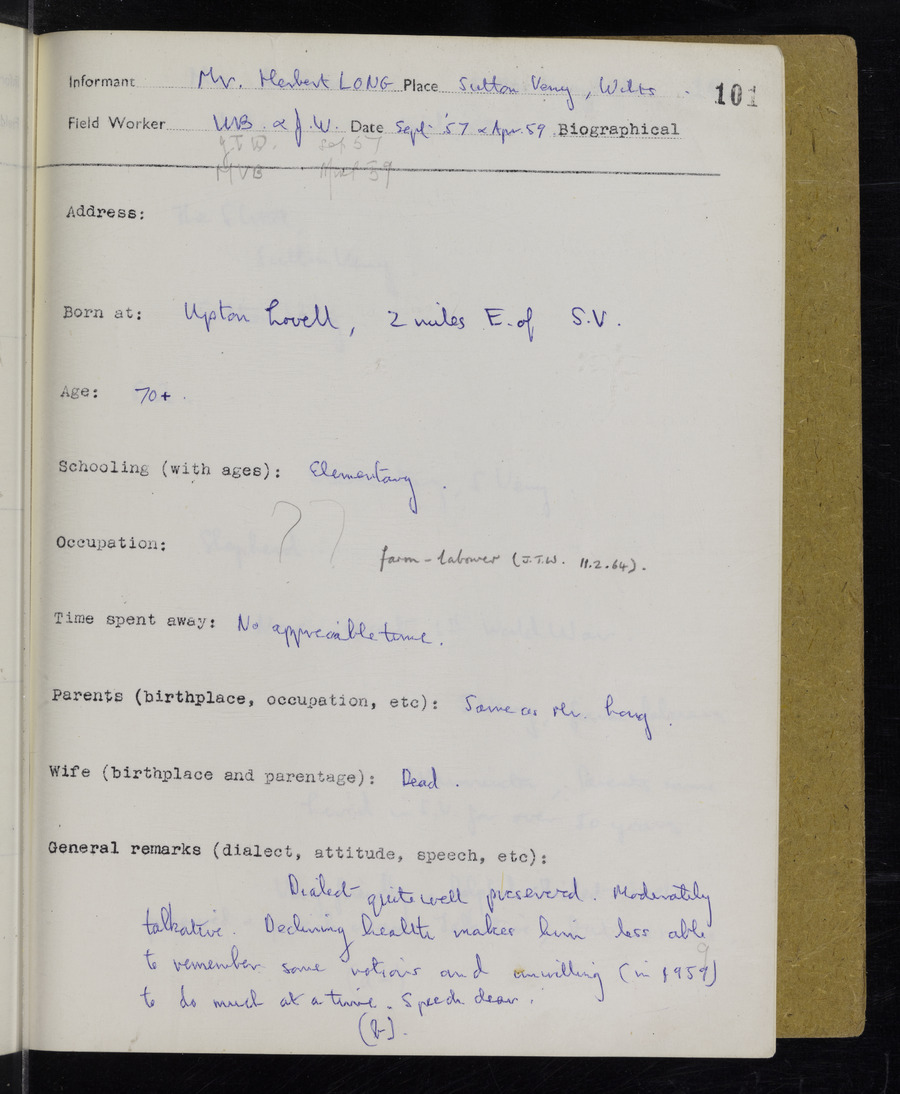 Informant Mr. Herbert LONG Place Sutton Veny, Wilts. 101
Field Worker MVB. & J.W. Date Sept '57 & Apr. 59 Biographical
J.T.W. Sep 57
MVB 59
Address:
Born at: Upton Lovell, 2 miles E. of S.V.
Age: 70+.
Schooling (with ages): Elementary.
Occupation: ?? farm-labourer (J.T.W. 11.2.64).
Time spent away: No appreciable time.
Parents (birthplace, occupation, etc): Same as Mr. Long.
Wife (birthplace and parentage): Dead.
General remarks (dialect, attitude, speech, etc):
Dialect quite well preserved. Moderately
talkative. Declining health makes him less able
to remember some notions and unwilling (in 1959)
9
to do much at a time. Speech clear.